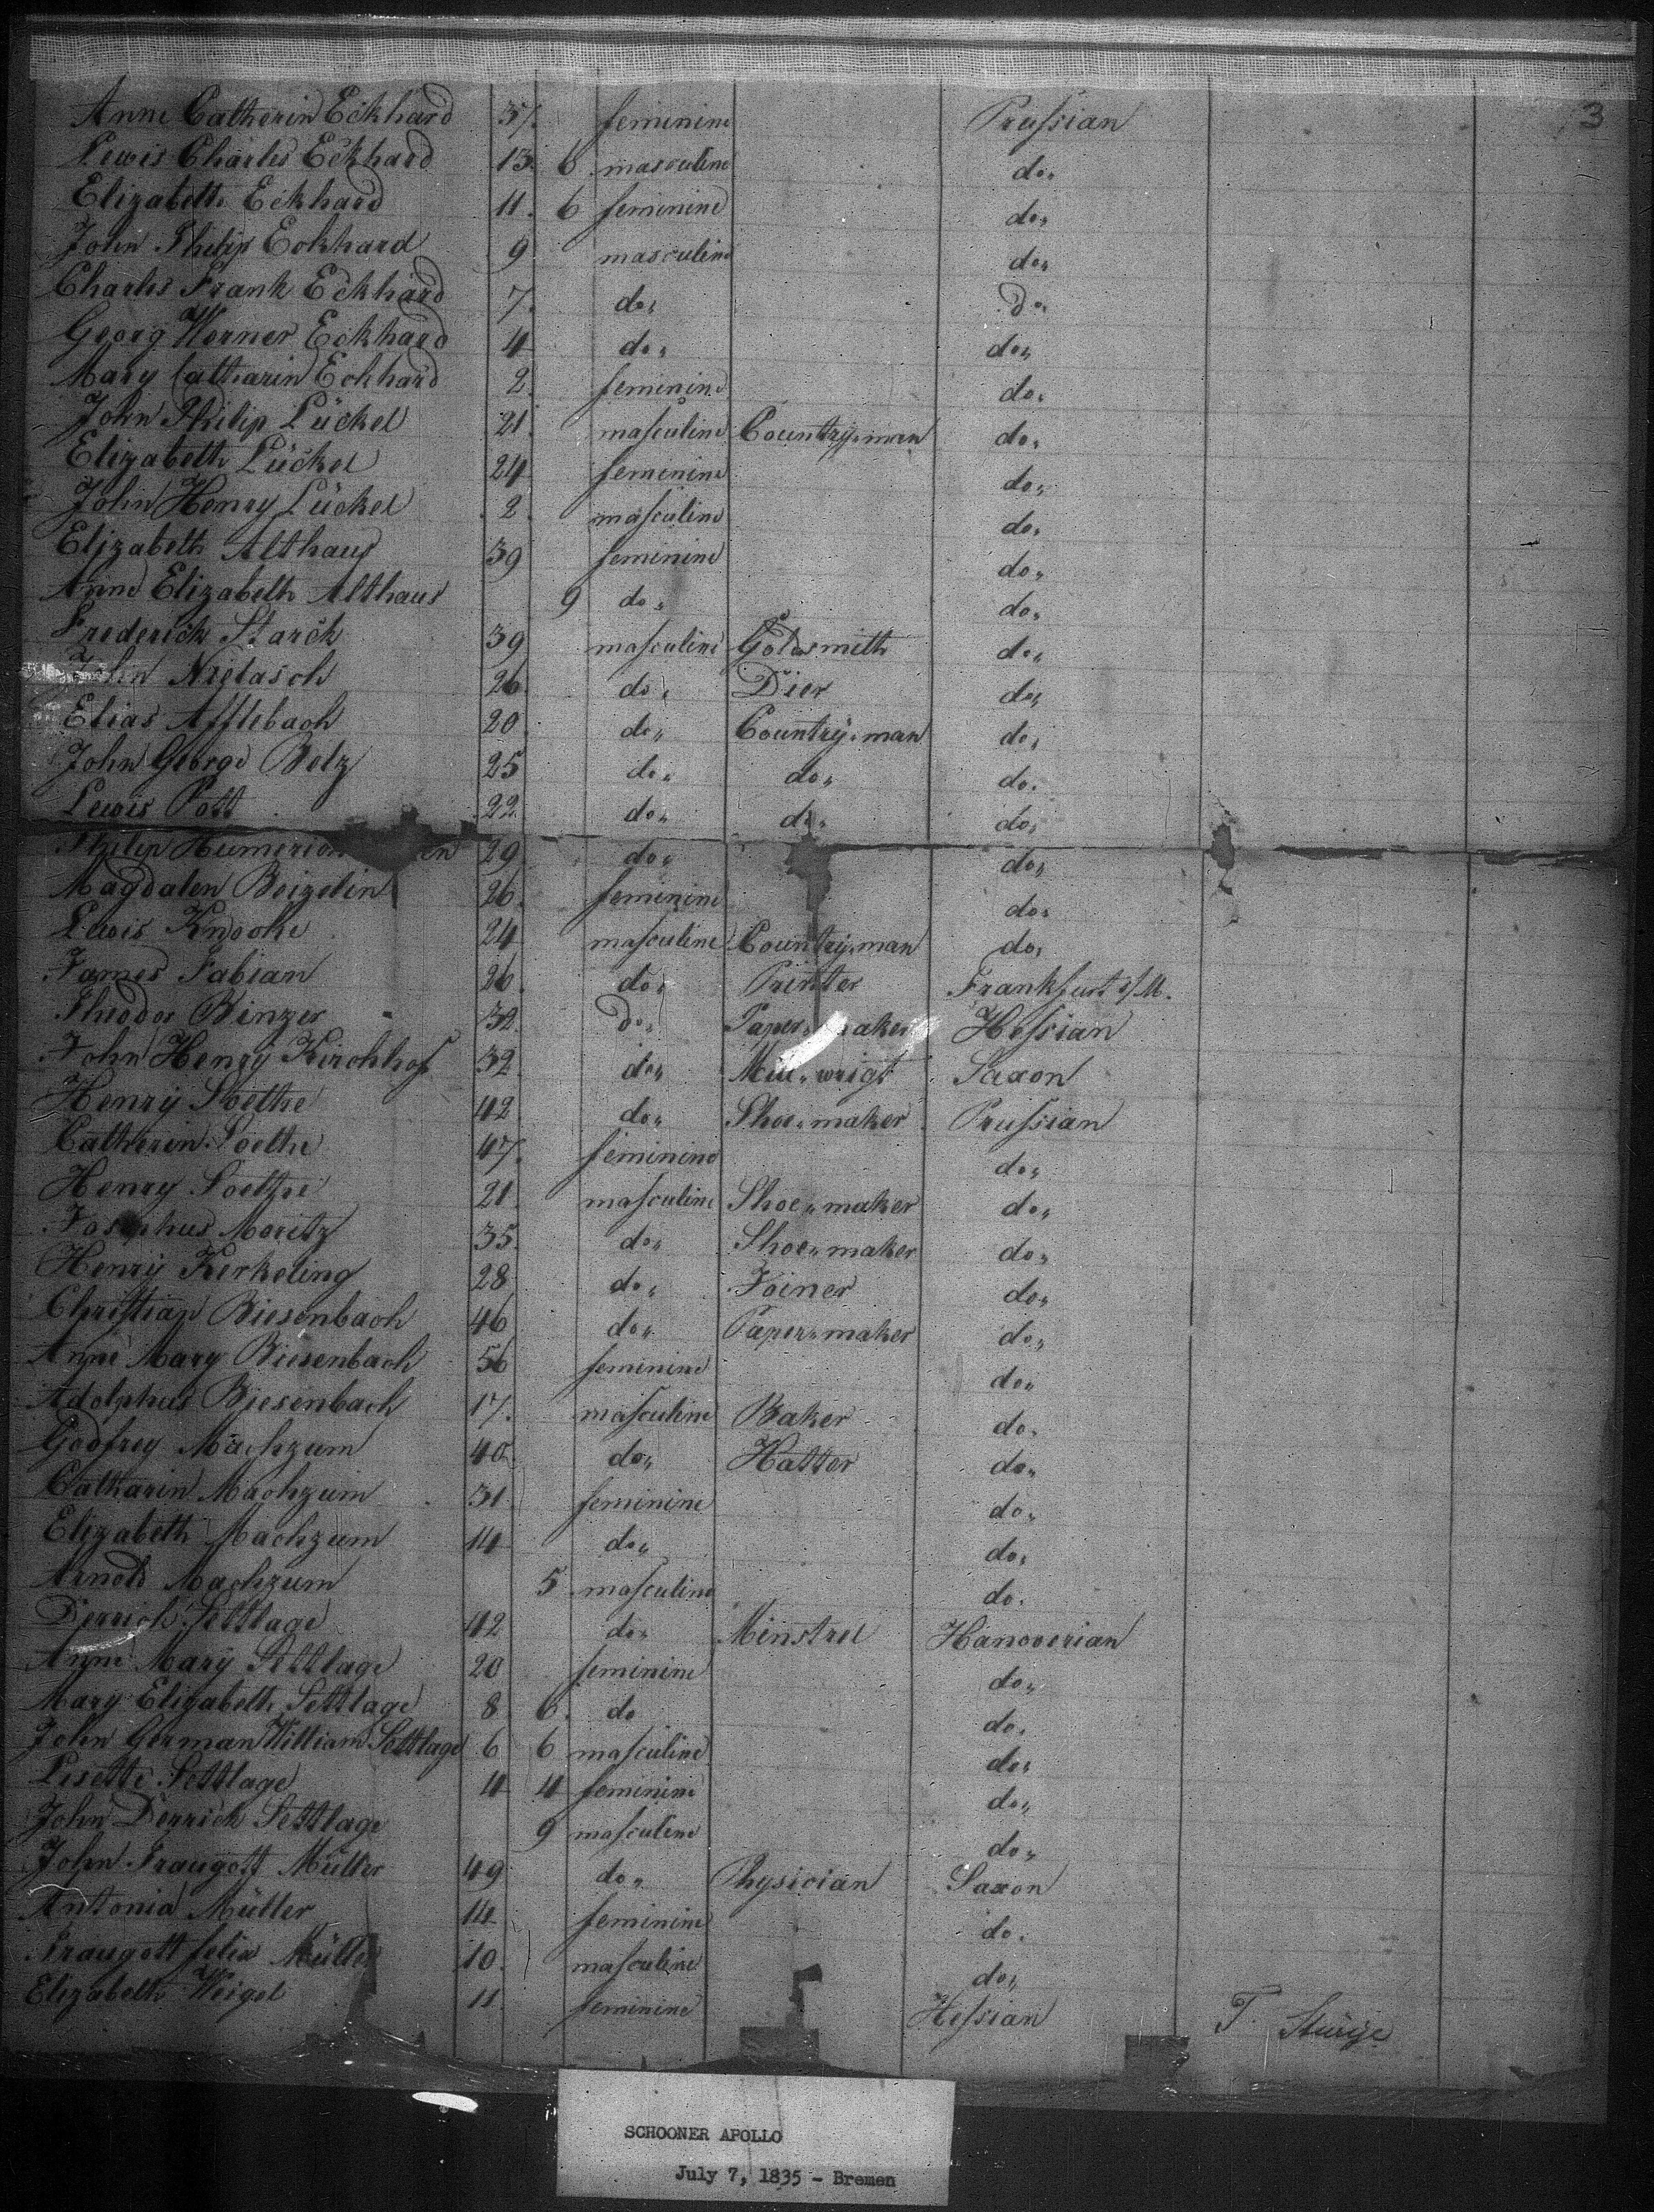 3
Anne Catherin Eckhard 37. feminine Prussian
Lewis Charles Eckhard 13. 6. masculine do.
Elizabeth Eckhard 11. 6 feminine do.
John Philip Eckhard 9 masculine do.
Charles Frank Eckhard 7. do. do.
Georg Werner Eckhard 4 do. do.
Mary Catharin Eckhard 2. feminine do.
John Philip Lückel 21. masculine Country-man do.
Elizabeth Lückel 24 feminine do.
John Henry Lückel 2. masculine do.
Elizabeth Althaus 39 feminine do.
Anne Elizabeth Althaus 9 do. do.
Frederick Starck 39 masculine Goldsmith do.
John 26. do. Dier do.
Elias Afflebach 20. do. Country-man do.
John George Belz 25 do. do. do.
Lewis Pott 22. do. do. do.
Philip 29 do. do.
Magdalen Beizelin 26. feminine do.
Lewis Knoche 24 masculine Country-man do.
James Fabian 26. do. Printer Frankfurt a/M.
Theodor Binzer 32. do. Paper-maker Hessian
John Henry Kirchhof 32. do. Mill-wrigt Saxon
Henry Soethe 42. do. Shoe-maker Prussian
Catherin Soethe 47. feminine do.
Henry Soethe 21. masculine Shoe-maker do.
Josephus Moritz 35. do. Shoe-maker do.
Henry Kerkeling 28 do. Joiner do.
Christian Biesenbach 46 do. Paper-maker do.
Anne Mary Biesenbach 56 feminine do.
Adolphus Biesenbach 17. masculine Baker do.
Godfrey Machzum 40. do. Hatter do.
Catharin Machzum 31. feminine do.
Elizabeth Machzum 14 do. do.
Arnold Machzum 5 masculine do.
Derrich Settlage 42 do. Minstrel Hanoverian
Anne Mary Settlage 20 feminine do.
Mary Elizabeth Settlage 8. 6. do do.
John German William Settlage 6 6 masculine do.
Lisette Settlage 4 4 feminine do.
John Derrich Settlage 9 masculine do.
John Traugott Müller 49 do. Physician Saxon
Antonia Müller 14 feminine do.
Traugott felix Müller 10. masculine do.
Elizabeth Weigel 11. feminine Hessian
SCHOONER APOLLO
July 7, 1835 - Bremen